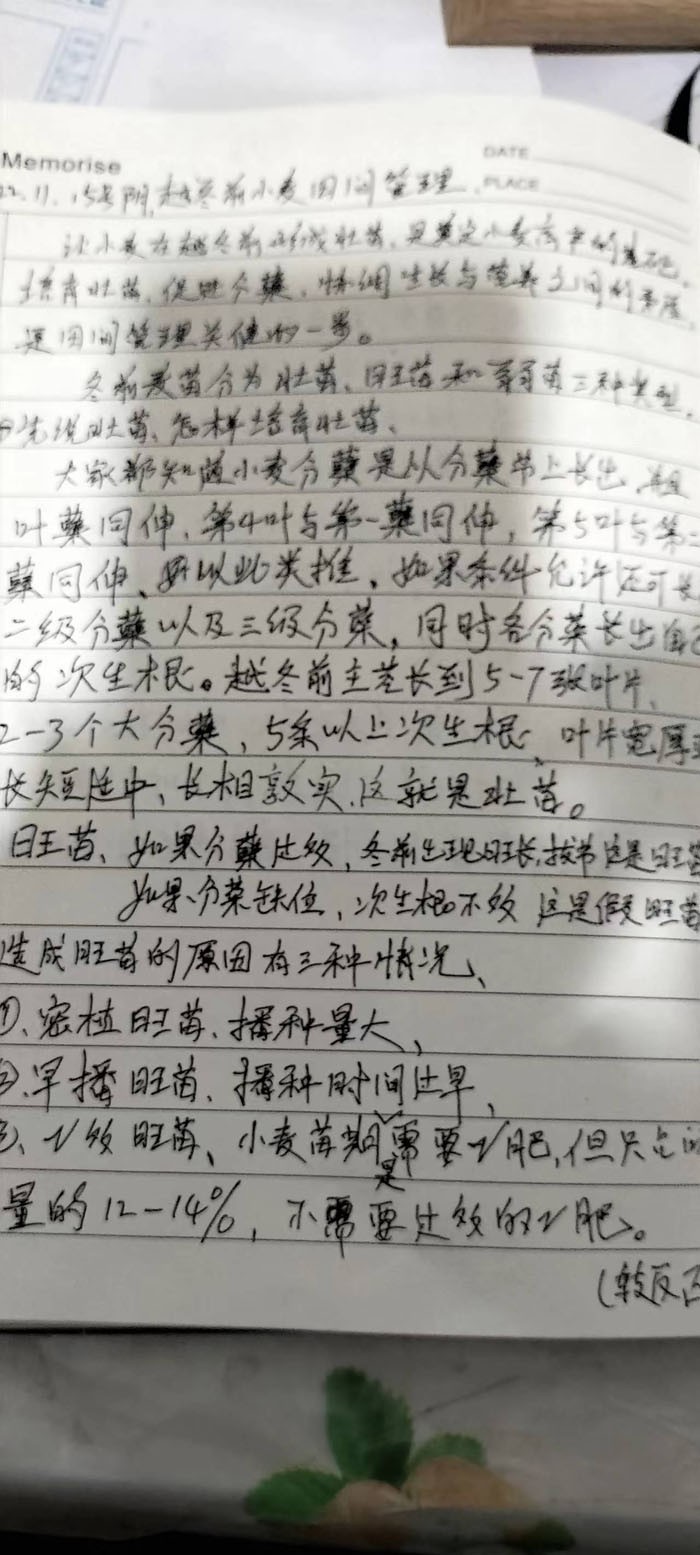 Memorise
DATE
PLACE
22.11.15号阴,越冬前小麦田间管理.
让小麦在越冬前形成壮苗,是奠定小麦高产的基础,
培育壮苗,促进分蘖,协调生长与营养之间的
是田间管理关健的一步。
冬前麦苗分为壮苗、旺苗和弱苗三种类型,
先说壮苗、怎样培育壮苗、
大家都知道小麦分蘖是从分蘖节上长出,且
叶蘖同伸,第4叶与第一蘖同伸,第5叶与第二
蘖同伸、所以此类推,如果条件允许还可长
二级分蘖以及三级分蘖,同时各分蘖长出自己
的次生根。越冬前主茎长到5-7张叶片,
2-3个大分蘖,5条以上次生根,叶片宽厚
长短适中,长相敦实,这就是壮苗。
旺苗、如果分蘖过多,冬前出现旺长,拔节这是旺苗
如果分蘖缺位,次生根不多这是假旺苗
造成旺苗的原因有三种情况、
①、密植旺苗、播种量大、
②、早播旺苗、播种时间过早、
③、N多旺苗、小麦苗期是需要N肥,但只占
量的12-14%,不需要过多的N肥。
(转反面